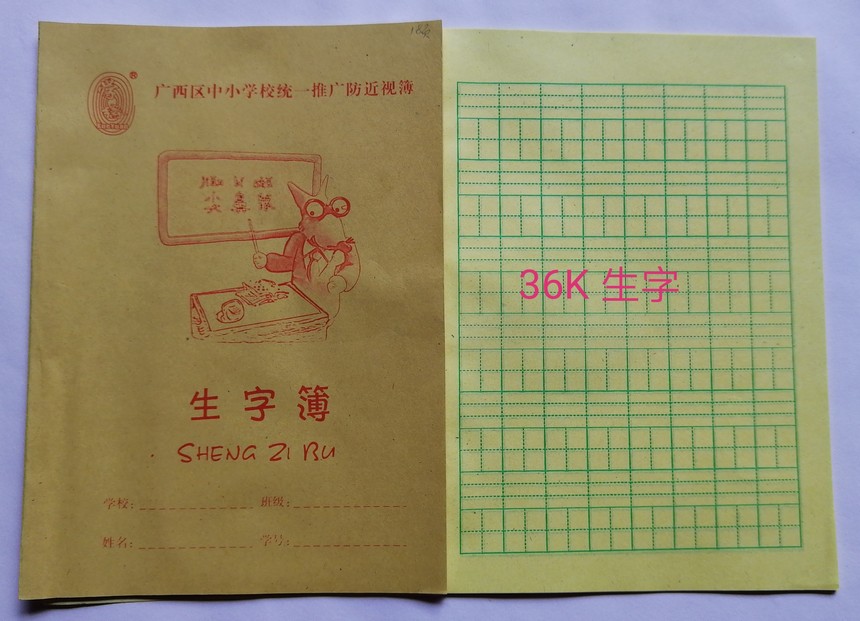 广西区中小学校统一推广防近视簿
生字簿
SHENG ZI BU
学校: 班级:
姓名: 学号:
36K 生字